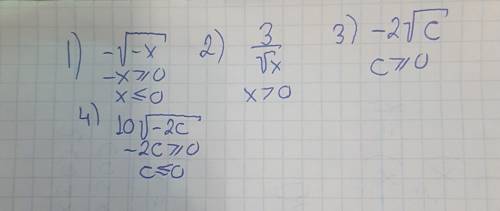 1) -√-x
-x ⩾ 0
x ≤ 0
2) 3/√x
x > 0
3) -2√c
c ⩾ 0
4) 10√-2c
-2c ⩾ 0
c ≤ 0